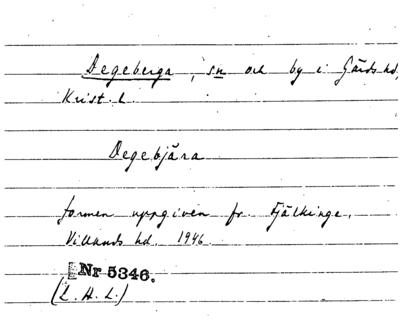 Degeberga, sn och by i Gärds hd,
Krist. l.
Degebjära
formen uppgiven fr. Fjälkinge,
Villands hd. 1946.
Nr 5346.
(L. H. L.)